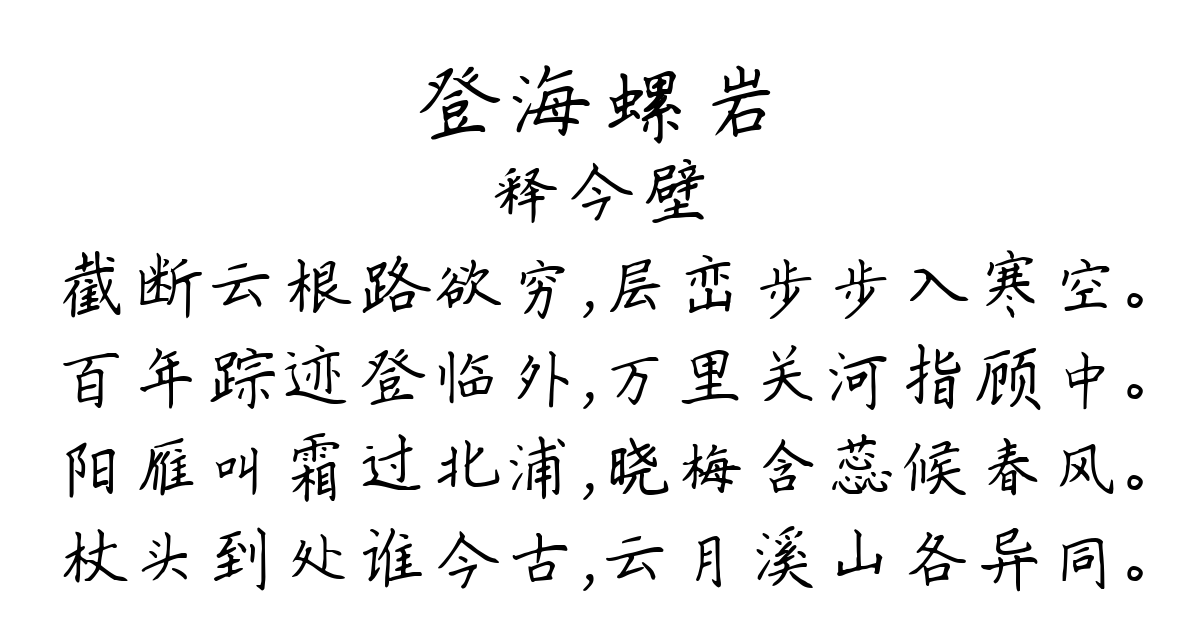 登海螺岩
释今壁
截断云根路欲穷,层峦步步入寒空。
百年踪迹登临外,万里关河指顾中。
阳雁叫霜过北浦,晓梅含蕊候春风。
杖头到处谁今古,云月溪山各异同。